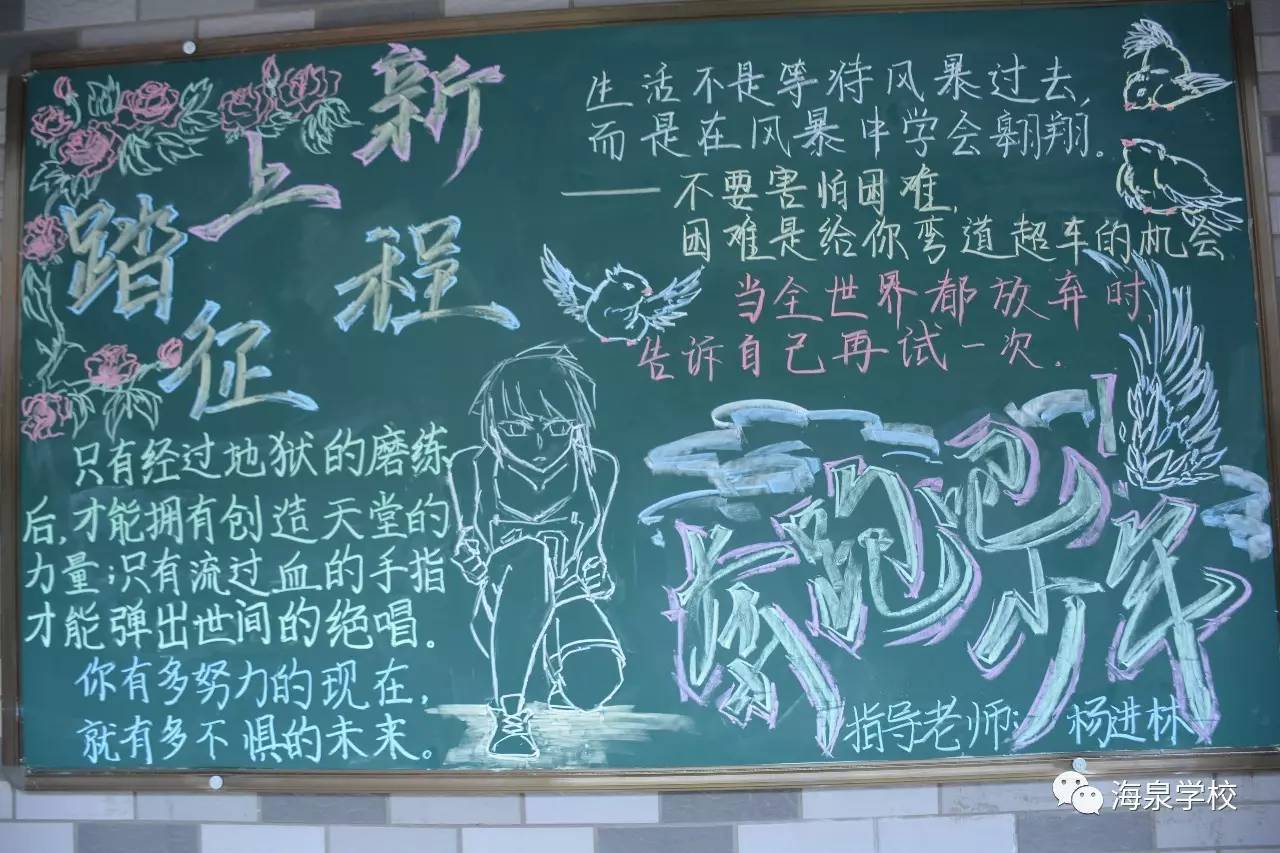 踏上新
征程
生活不是等待风暴过去,
而是在风暴中学会翱翔。
——不要害怕困难,
困难是给你弯道超车的机会
当全世界都放弃时,
告诉自己再试一次.
只有经过地狱的磨练
后,才能拥有创造天堂的
力量;只有流过血的手指
才能弹出世间的绝唱.
你有多努力的现在,
就有多不惧的未来。
奔跑吧少年
指导老师: 杨进林
海泉学校